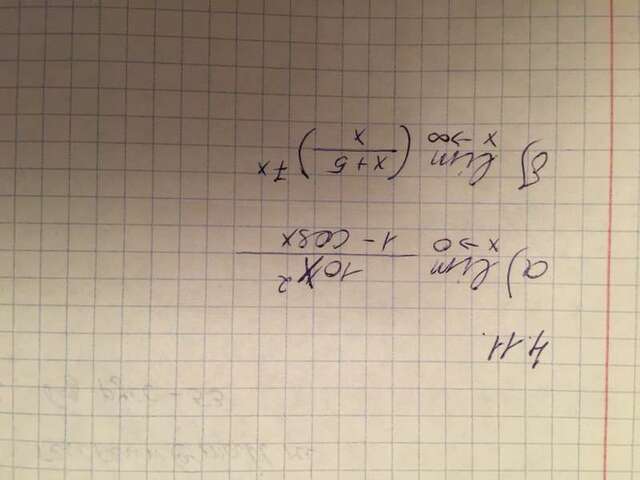 4.11.
а) lim x→0 10x² / 1 - cosx
б) lim x→∞ (x+5 / x) 7x